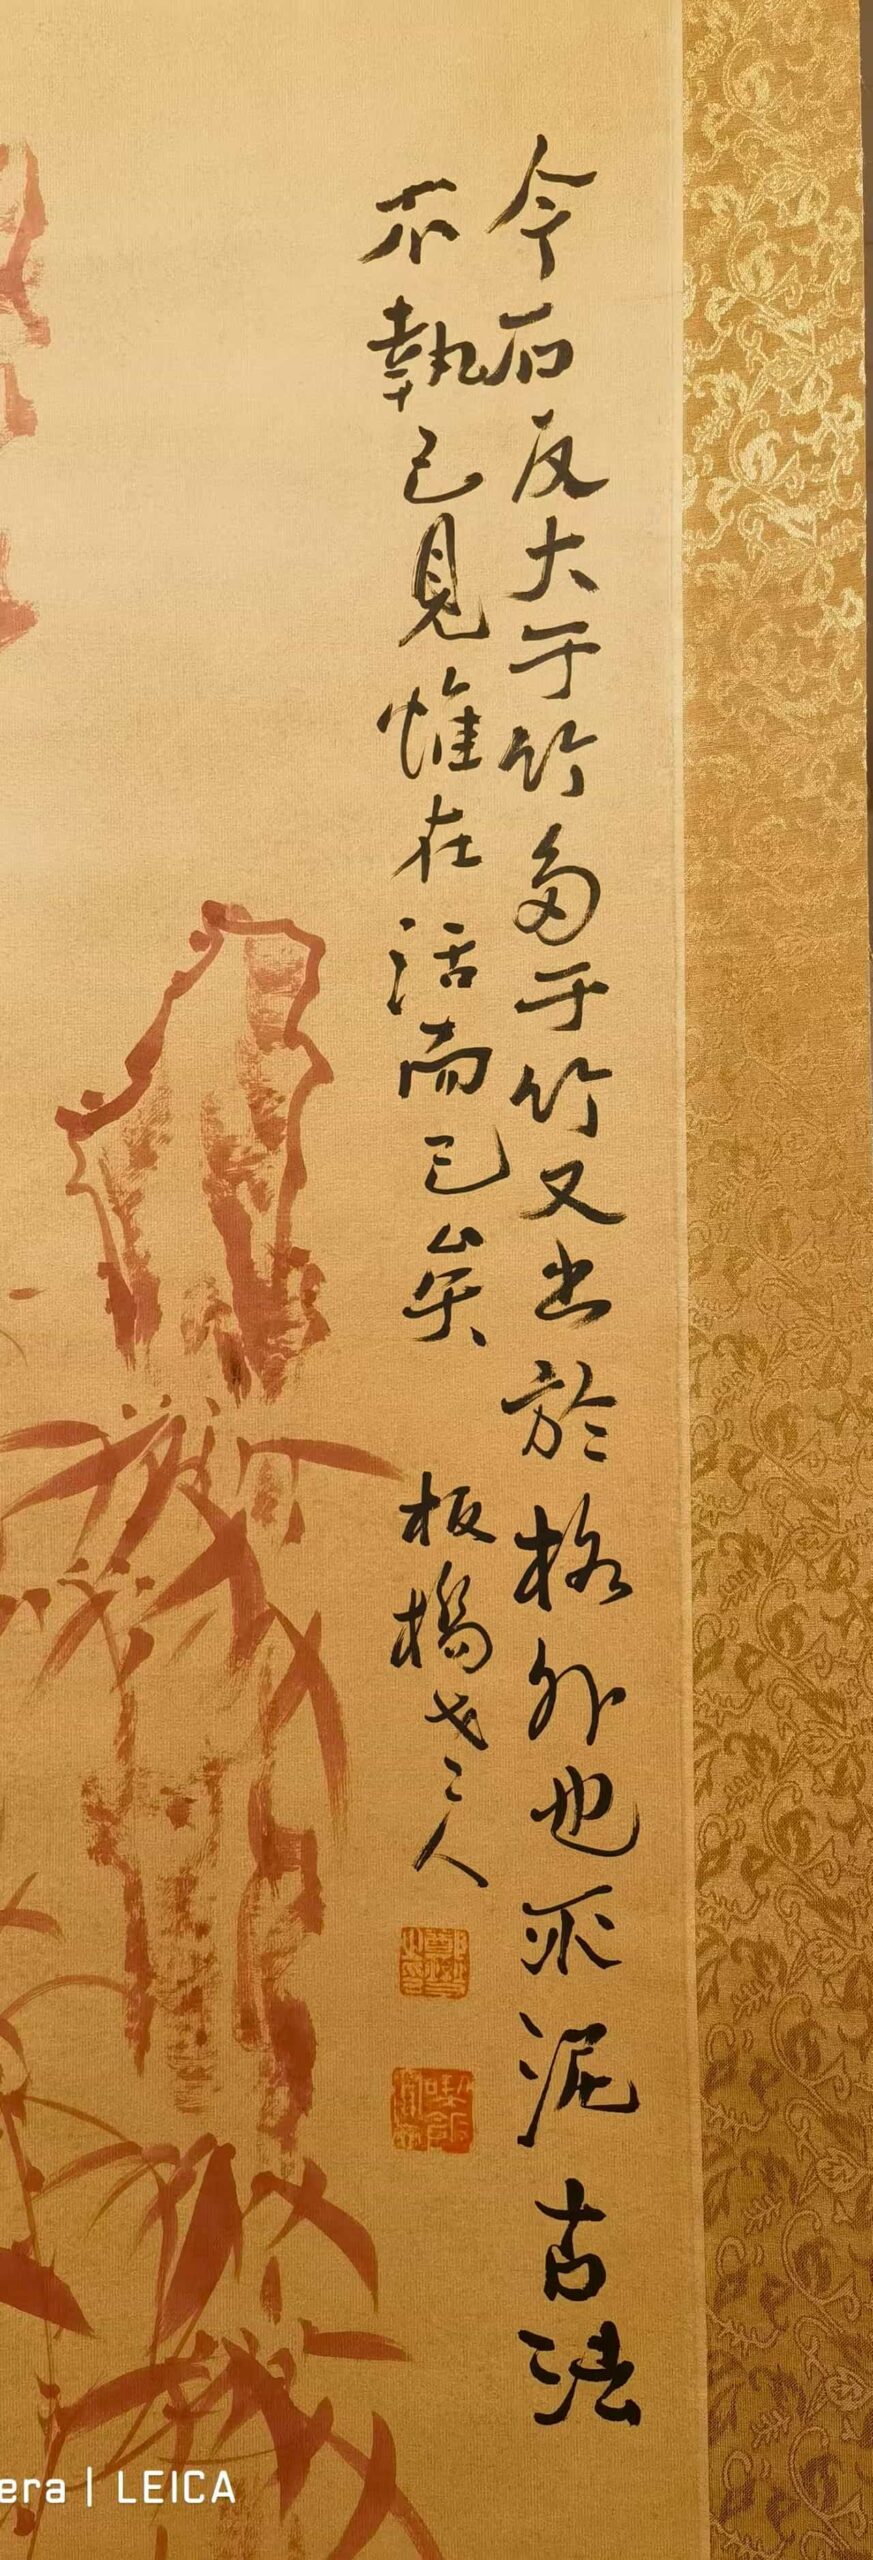 今石反大于竹多于竹又出於格外也不泥古法
不執己見惟在活而已矣
板橋老人
鄭燮之印
era | LEICA